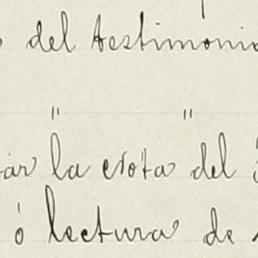 del testimonio
" "
la crota del
ó lectura de